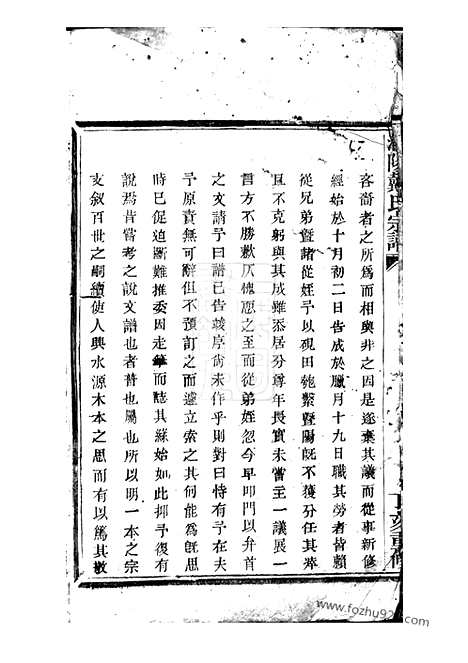 客嗇者之所爲而相與非之因是逐棄其議而從事新修
經始於十月初二日告成於臘月十九日職其勞者皆賴
從兄弟暨諸從姪予以硯田匏繫暨陽旣不獲分任其瘁
且不克躬與其成雖忝居分尊年長實未嘗主一議展一
言方不勝歉仄愧慝之至而從弟姪忽今早叩門以弁首
之文請予曰譜已告竣序尙未作乎則對曰恃有予在夫
予原責無可辭但不預訂之而遽立索之其何能爲旣思
時已促迫斷難推委因走筆而誌其緣始如此抑予復有
說焉昔嘗考之說文譜也者普也屬也所以明一本之宗
支叙百世之嗣續使人興水源木本之思而有以篤其敬
戴氏宗譜
重修
www.fozhu920.com